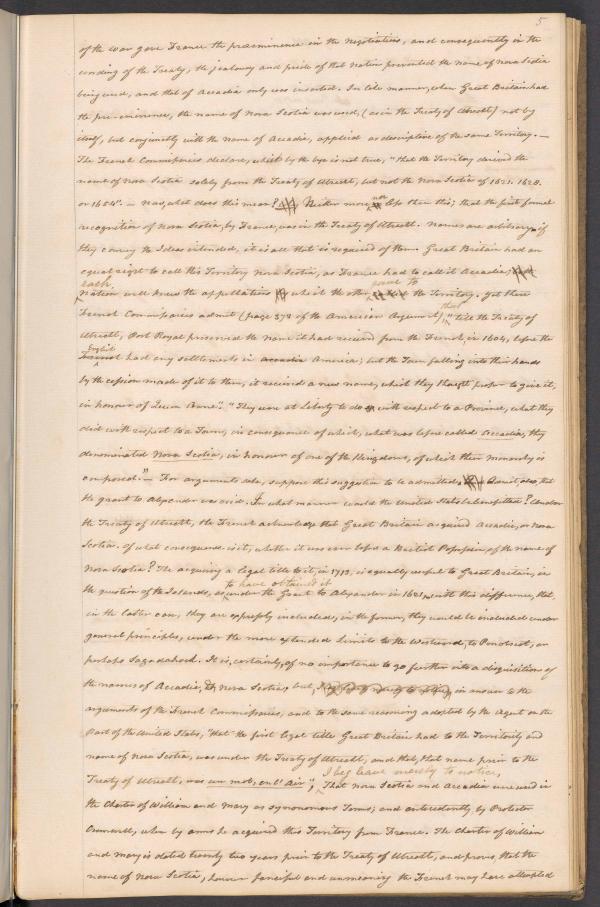 5
of the War gave France the preeminence in the Negotiation, and consequently in the
wording of the Treaty, the jealousy and pride of that nation prevented the name of Nova Scotia
being used, and that of Accadia only was inserted. In like manner, when Great Britain had
the pre-eminence, the name of Nova Scotia was used, (as in the Treaty of Utrecht) not by
itself, but conjunctly with the name of Accadia, applied as descriptive of the same Territory. —
The French Commissaries declare, which by the bye is not true, "that the Territory derived the
name of Nova Scotia solely from the Treaty of Utrecht, but not the Nova Scotia of 1621. 1628.
or 1654". — Now, what does this mean? Neither more nor less than this; that the first formal
recognition of Nova Scotia, by France, was in the Treaty of Utrecht. Names are arbitrary, if
they convey the Ideas intended, it is all that is required of them. Great Britain had an
equal right to call this Territory Nova Scotia, as France had to call it Accadia;
each
nation well knew the appellations which the other gave to the Territory. Yet these
French Commissaries admit (page 378 of the American Argument) that "till the Treaty of
Utrecht, Port Royal preserved the name it had received from the French, in 1604, before the
English
had any settlements in America; but the Town falling into their hands
by the cession made of it to them, it received a new name, which they thought proper to give it,
in honour of Queen Anne". "They were at Liberty to do with respect to a Province, what they
did with respect to a Town, in consequence of which, what was before called Accadia, they
denominated Nova Scotia, in honour of one of the Kingdoms, of which their monarchy is
composed." — For arguments sake, suppose this suggestion to be admitted, Admit, also, that
the grant to Alexander was void. In what manner would the United States be benefitted? Under
the Treaty of Utrecht, the French acknowledge that Great Britain acquired Accadia, or Nova
Scotia. Of what consequence is it, whether it was ever before a British Possession, of the name of
Nova Scotia? The acquiring a legal title to it, in 1713, is equally useful to Great Britain, in
the question of the Islands, as to have obtained it under the Grant to Alexander in 1621, with this difference, that
in the latter case, they are expressly included, in the former, they would be included under
general principles, under the more extended Limits to the Westward, to Penobscot, or
perhaps Sagadahock. It is, certainly, of no importance to go further into a disquisition of
the names of Accadia, & Nova Scotia, but, in answer to the
arguments of the French Commissaries, and to the same reasoning adopted by the Agent on the
part of the United States, "that the first legal title Great Britain had to the Territory and
name of Nova Scotia, was under the Treaty of Utrecht, and that, that name prior to the
Treaty of Utrecht, was un mot, en l'Air", I beg leave merely to notice, That Nova Scotia and Accadia were used in
the Charter of William and Mary as synonomous Terms; and antecedently by Protector
Cromwell, when by arms he acquired this Territory from France. The Charter of William
and Mary is dated twenty two years prior to the Treaty of Utrecht, and proves, that the
name of Nova Scotia, however fanciful and unmeaning the French may have attempted